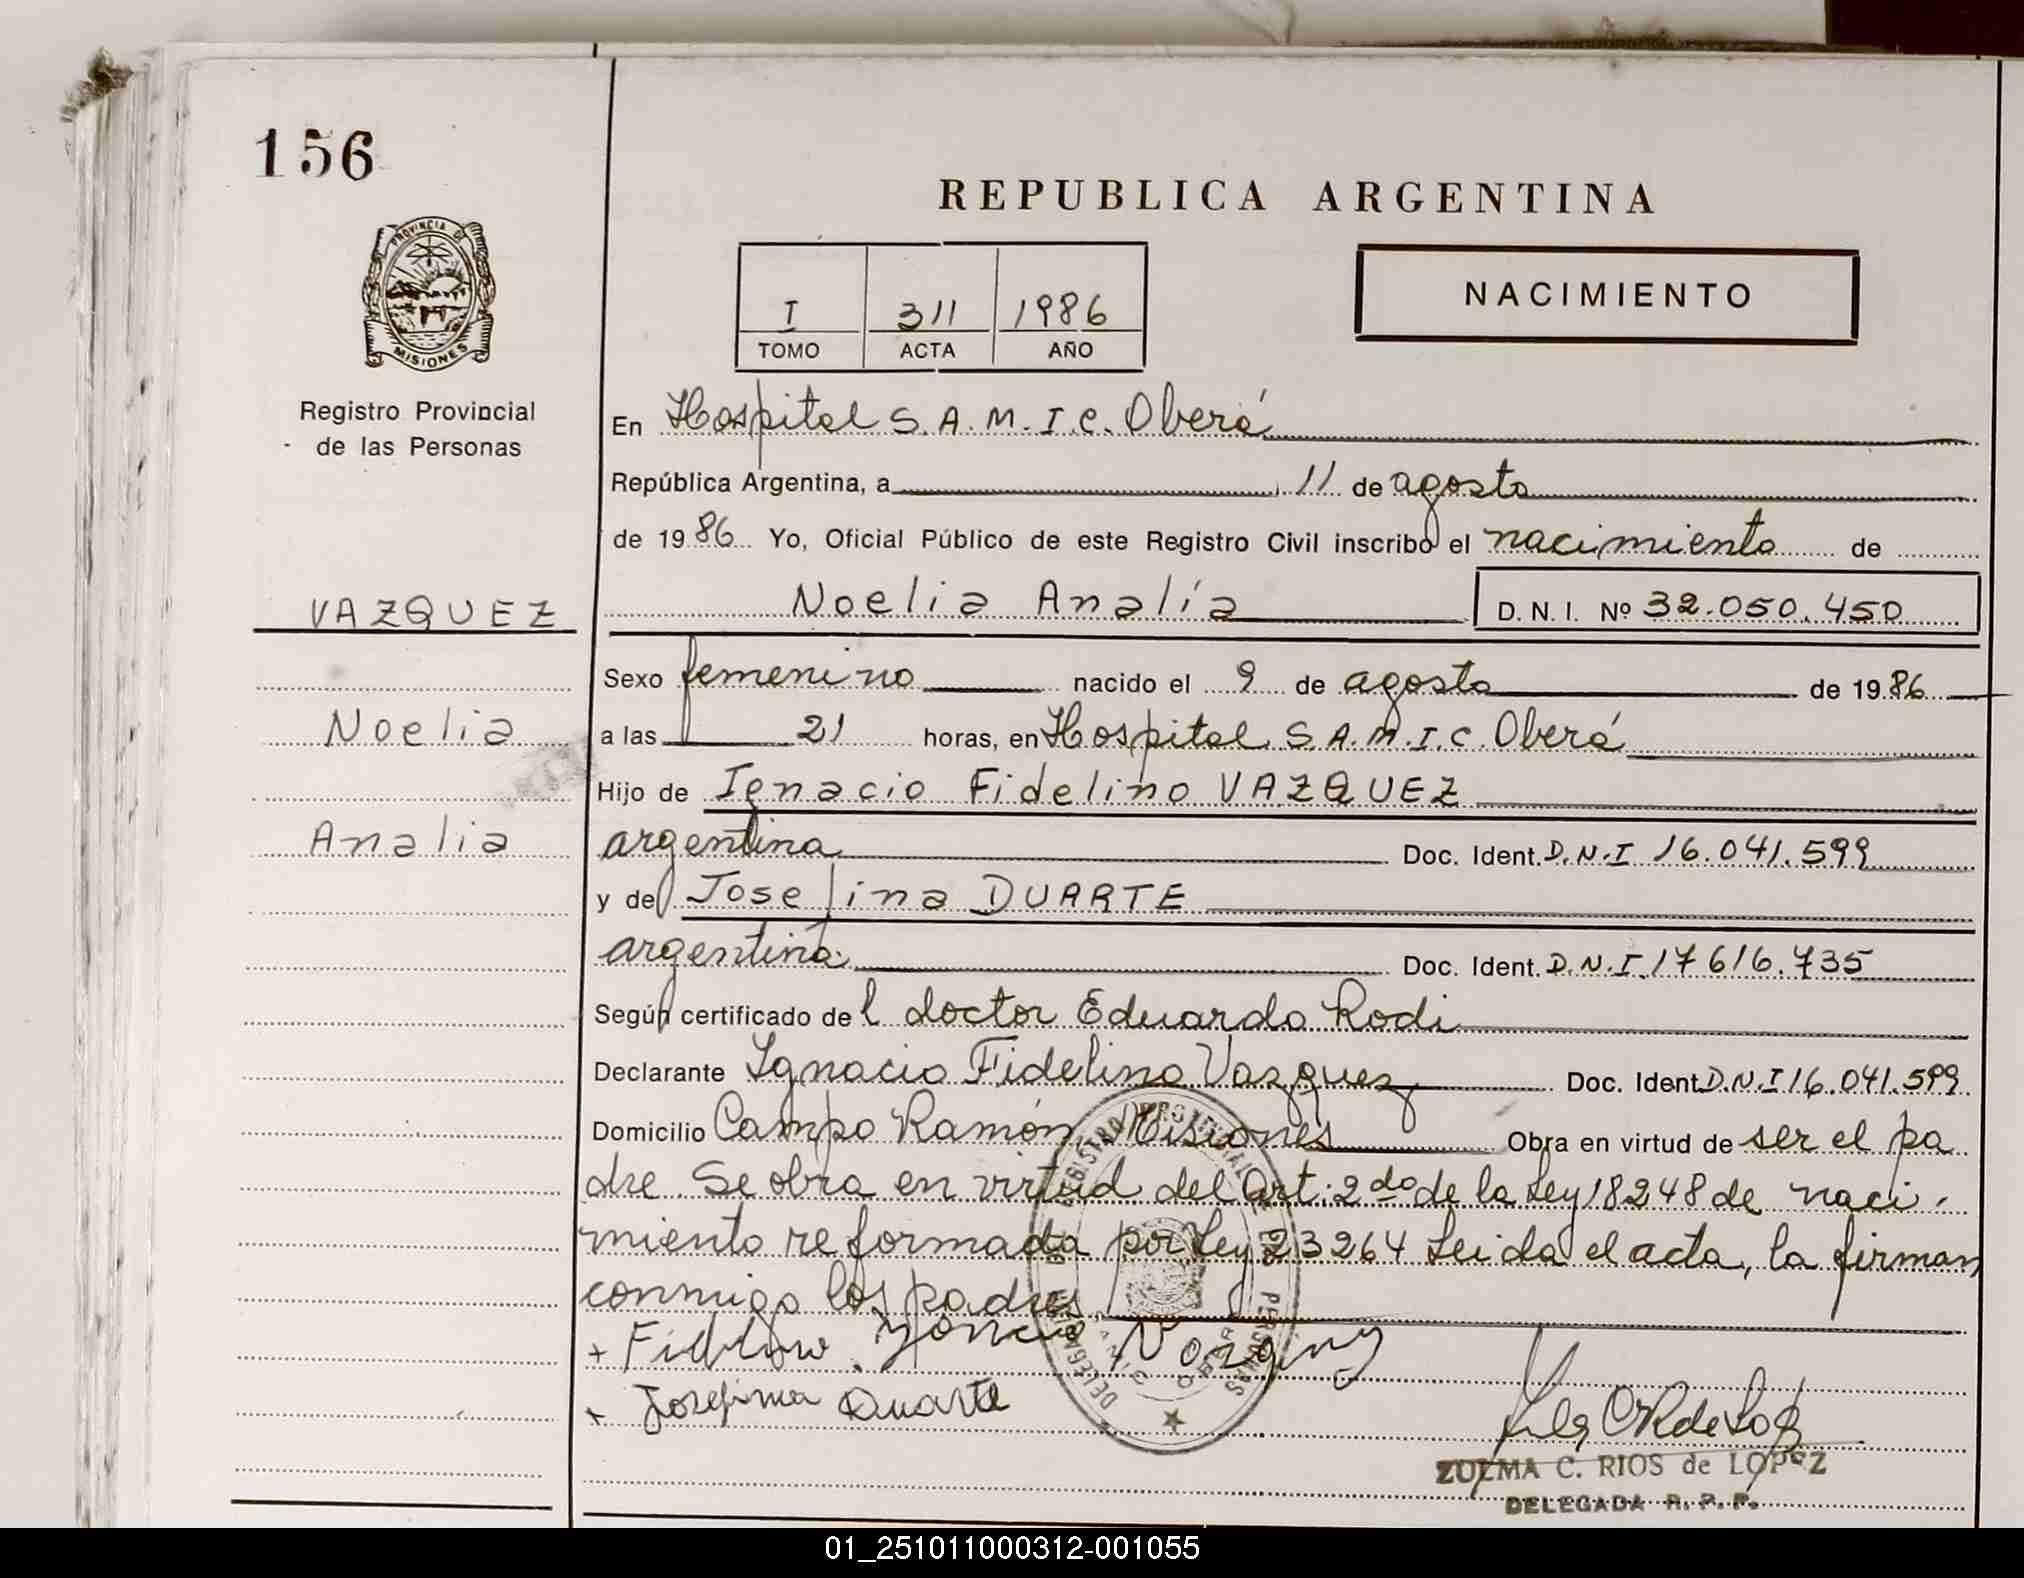 156
PROVINCIA DE
MISIONES
Registro Provincial
de las Personas
VAZQUEZ
Noelia
Analia
REPUBLICA ARGENTINA
I 311 1986
TOMO ACTA AÑO
NACIMIENTO
En Hospital S.A.M.I.C. Oberá
República Argentina, a 11 de agosto
de 1986 Yo, Oficial Público de este Registro Civil inscribo el nacimiento de
Noelia Analía D.N.I. Nº 32.050.450
Sexo femenino nacido el 9 de agosto de 1986
a las 21 horas, en Hospital S.A.M.I.C. Oberá
Hijo de Ignacio Fidelino VAZQUEZ
argentina Doc. Ident. D.N.I 16.041.599
y de Josefina DUARTE
argentina Doc. Ident. D.N.I. 17616.735
Según certificado del doctor Eduardo Rodi
Declarante Ignacio Fidelino Vazquez Doc. Ident. D.N.I 16.041.599
Domicilio Campo Ramón, Misiones Obra en virtud de ser el pa
dre. Se obra en virtud del Art: 2do de la Ley 18248 de naci-
miento reformada por Ley 23264 Leida el acta, la firman
conmigo los padres
+ Josefina Duarte
ZULMA C. RIOS de LOPEZ
DELEGADA R.P.P.
01_251011000312-001055